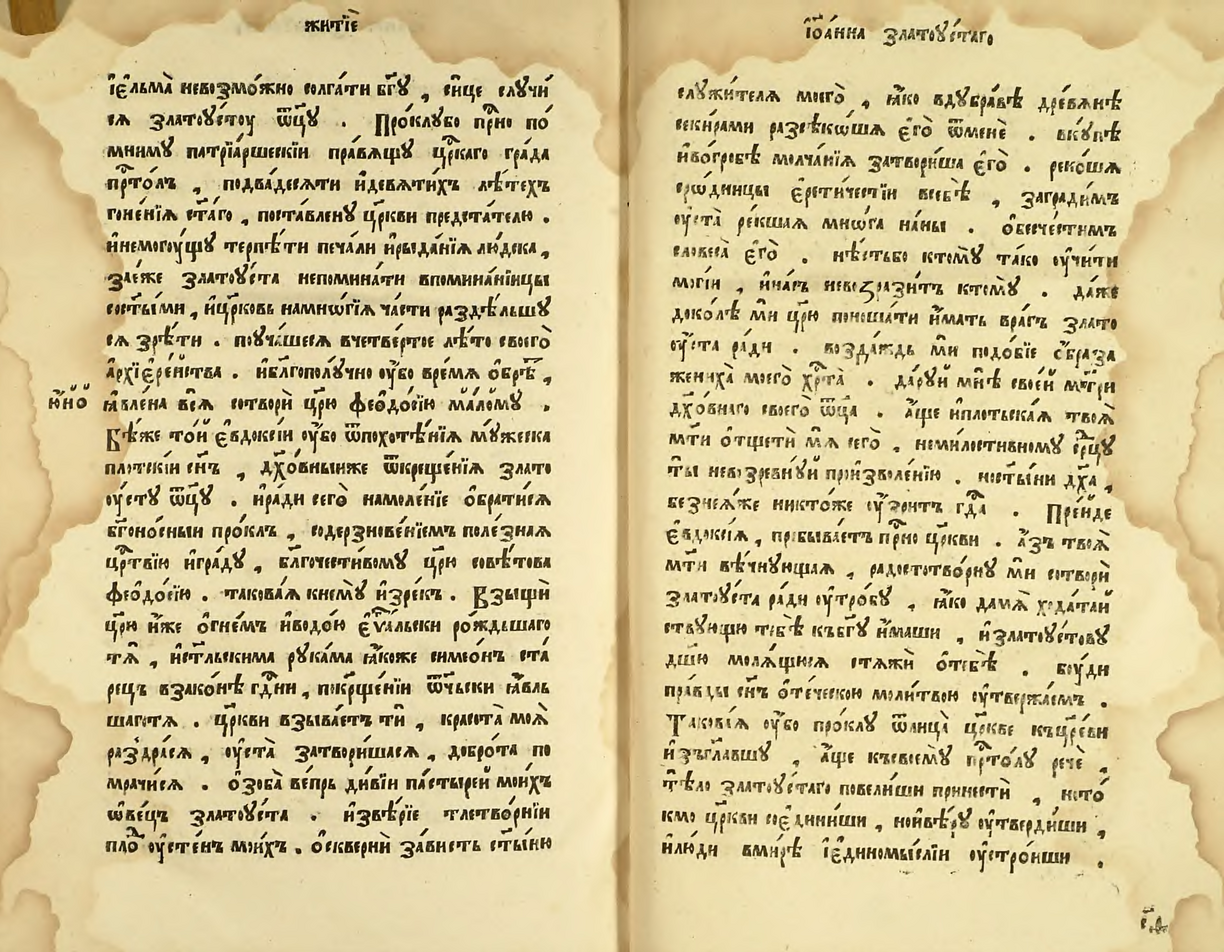 житїѐ
їѡ́анна златоꙋ́стаго
їєльма̀ невозмо́жно солга́ти бг҃ꙋ , си́це слꙋчи́
сѧ златоꙋ́стоу ѿцꙋ̀ . Про́клꙋбо при́о по́
мнимꙋ̀ патрїа́ршескїи пра́вѧщꙋ цр҃каго гра́да
прⷭ҇то́лъ , подва́десѧти и҆девѧ́тихъ лѣ́техъ
гоне́нїѧ ст҃а́го , поста́вленꙋ цр҃кви предста́телю .
и҆немогꙋ́щꙋ терпѣ́ти печа́ли и҆рыда́нїѧ лю́дска ,
за́еже златоꙋ́ста непомина́ти впомина́нїицы
состы́ми , и҆цр҃ковь намнѡ́гїѧ ча́сти раздѣ́льшꙋ
сѧ зрѣ́ти . поꙋча́шесѧ вчетве́ртое лѣ́то своего̀
а҆рхїєре́йства . и҆благополꙋ́чно оу҆́бо вре́мѧ о҆брѣ́т ,
ю҆́но ꙗ҆вле́на всѧ̀ сотворѝ цр҃ю̀ феѻдо́сїю ма́ломꙋ .
Бѣ́же то́й є҆вдоксїи оу҆́бо ѿпохотѣ́нїѧ мꙋ́жеска
пло́тскїи сн҃ъ , дх҃о́вныиже ѿкреще́нїѧ злато
оу҆́стꙋ ѿцꙋ̀ . и҆ра́ди сего̀ намоле́нїе о҆брати́сѧ
бг҃оно́сныи про́клъ , содерзнове́нїемъ поле́знаѧ
црⷭ҇твїю и҆гра́дꙋ , бл҃гочести́вомꙋ цр҃ю̀ совѣ́това
феѻдо́сїю . такова́ѧ кнемꙋ̀ и҆зре́къ . Взыщѝ
цр҃ю̀ и҆́же о҆гне́мъ и҆водо́ю є҆ѵⷢ҇а́льски ро́ждьшаго
тѧ̀ , и҆ст҃и́льскима рꙋка́ма ꙗ҆́коже симео́нъ ста́
рецъ взако́нѣ гдⷭ҇ни , покрще́нїи ѿчьски ꙗ҆́вль
шагосѧ . цр҃кви взыва́етъ тѝ , красота̀ моѧ̀
раздра́сѧ , оу҆ста̀ затвори́шасѧ , добро́та по
мрачи́сѧ . о҆зоба̀ ве́прь ди́вїи па́стырей мои́хъ
ѡ҆ве́цъ златоꙋ́ста . и҆звѣ́рїе тлетво́рнїи
пло̀ оу҆сте́нъ мои́хъ . о҆сквернѝ за́висть ст҃ы́ню
слꙋжи́телѧ моего̀ , ꙗ҆́ко вдꙋбра́вѣ дре́вѧнѣ
секи́рами разсѣко́шѧ є҆го̀ ѿменѐ . вкꙋ́пѣ
и҆вогро́бѣ молча́нїѧ затвори́ша є҆го̀ . реко́шѧ
сро́дницы є҆рети́честїи всебѣ̀ , загради́мъ
оу҆ста̀ ре́кшаѧ мнѡ́га на́ны . о҆безче́стимъ
словеса̀ є҆го̀ . нѣ́стьбо ктомꙋ̀ та́ко оу҆чи́ти
могі́и , и҆на́съ невозрази́тъ ктомꙋ̀ . да́же
доко́лѣ ми цр҃ю̀ поноша́ти и҆́мать вра́гъ злато
оу҆́ста ра́ди . возда́ждь ми подо́бїе о҆́браза
жениха̀ моего̀ хрⷭ҇та̀ . да́рꙋй мнѣ̀ свое́й ма́тери
дх҃о́внаго своего̀ ѿца̀ . а҆́ще и҆пло́тьскаѧ твоѧ̀
мт҃и о҆тщетѝ мѧ̀ сего̀ , неми́лостивномꙋ ср҃цꙋ
ты̀ невозревнꙋ́й произволе́нїю . ност҃ы́ни дх҃а ,
безнеѧ́же никто́же оу҆́зритъ гдⷭ҇а . Пре́йде
є҆вдо́ксїѧ , пребыва́етъ при́о цр҃кви . а҆́зъ твоѧ̀
мт҃и вѣ́чнꙋющаѧ , радостотво́рнꙋ ми сотворѝ
златоꙋ́ста ра́ди оу҆тро́бꙋ , ꙗ҆́ко дамѧ̀ хода́тай
ствꙋющꙋ тебѣ̀ къбг҃ꙋ и҆́маши , и҆златоꙋ́стовꙋ
дш҃ю̀ молѧ́щисѧ стѧжѝ о҆тебѣ̀ . бꙋ́ди
пра́вды сн҃ъ о҆те́ческою моли́твою оу҆твержа́емъ .
Такова́ѧ оу҆́бо про́клꙋ ѿлица̀ цр҃кве къцр҃е́ви
и҆зъгл҃авшꙋ , а҆́ще късвоемꙋ̀ прⷭ҇то́лꙋ речѐ ,
тѣ́ло златоꙋ́стаго повели́ши принестѝ , и҆сто́
кмо цр҃кви соєди́ниши , но́ивѣ́рꙋ оу҆тверди́ши ,
и҆лю́ди вми́рѣ їєдиномы́слїи оу҆стро́иши .